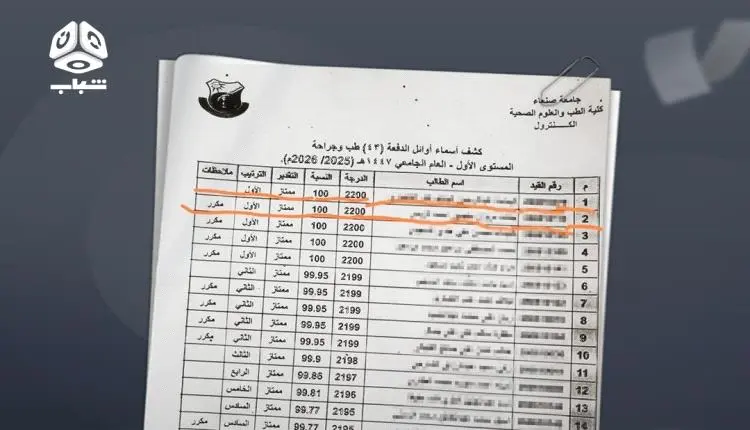 شباب
جامعة صنعاء
كلية الطب والعلوم الصحية
الكنترول
كشف أسماء أوائل الدفعة (٤٣) طب وجراحة
المستوى الأول - العام الجامعي ١٤٤٧هـ (2025/ 2026م).
م رقم القيد اسم الطالب الدرجة النسبة التقدير الترتيب ملاحظات
1 2200 100 ممتاز الأول
2 2200 100 ممتاز الأول مكرر
3 2200 100 ممتاز الأول مكرر
4 2200 100 ممتاز الأول مكرر
5 2199 99.95 ممتاز الثاني
6 2199 99.95 ممتاز الثاني مكرر
7 2199 99.95 ممتاز الثاني مكرر
8 2199 99.95 ممتاز الثاني مكرر
9 2199 99.95 ممتاز الثاني مكرر
10 2198 99.9 ممتاز الثالث
11 2197 99.86 ممتاز الرابع
12 2196 99.81 ممتاز الخامس
13 2195 99.77 ممتاز السادس
14 2195 99.77 ممتاز السادس مكرر